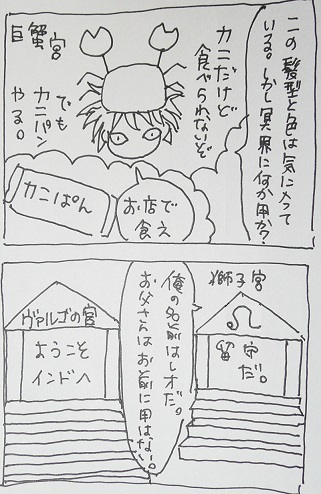 この髪型と色は気に入って
いる。しかし冥界に何か用か?
カニだけど
食べられないぞ
巨蟹宮
でも
カニパン
やる。
お店で
食え
カニぱん
獅子宮
♌
留守
だ。
俺の名前はレオだ。
お父さんはお前に用はない。
ヴァルゴの宮
ようこそ
インドへ